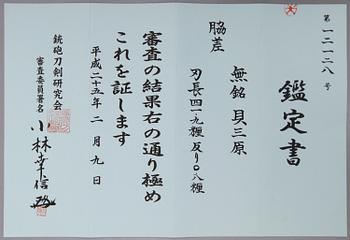 第一二一二八号
鑑定書
脇差
無銘 貝三原
刃長四一九糎 反り〇八糎
審査の結果右の通り極め
これを証します
平成二十五年二月九日
銃砲刀剣研究会
審査委員署名
小林幸信